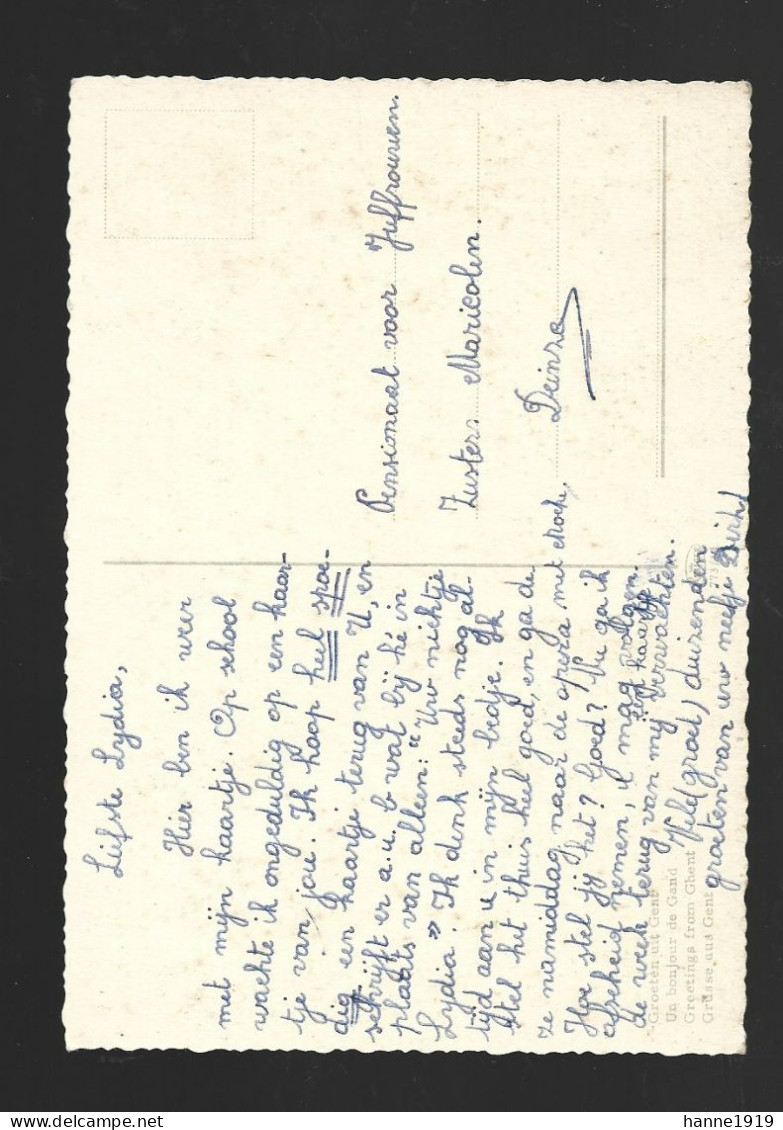 Liefste Lydia,
Hier ben ik weer
met mijn kaartje. Op school
wachte ik ongeduldig op een kaar-
tje van jou. Ik hoop heel spoe-
dig een kaartje terug van U, en
schrijft er a.u.b wat bij hé in
plaats van alleen: "Uw nichtje
Lydia" Ik denk steeds nog al-
tijd aan u in mijn bedje. Ik
stel het thuis heel goed, en ga de-
ze namiddag naar de opera met
Hoe stel jij het? Goed? Nu ga ik
afscheid nemen, ik mag volgen-
de week terug van mij een kaartje verwachten.
Vele (groet) duizenden
groeten van uw neefje Dirk
Pensionaat voor Juffrouwen.
Zusters Maricolen.
Deinze
Groeten uit Gent
Un bonjour de Gand
Greetings from Ghent
Grüsse aus Gent
hanne1919